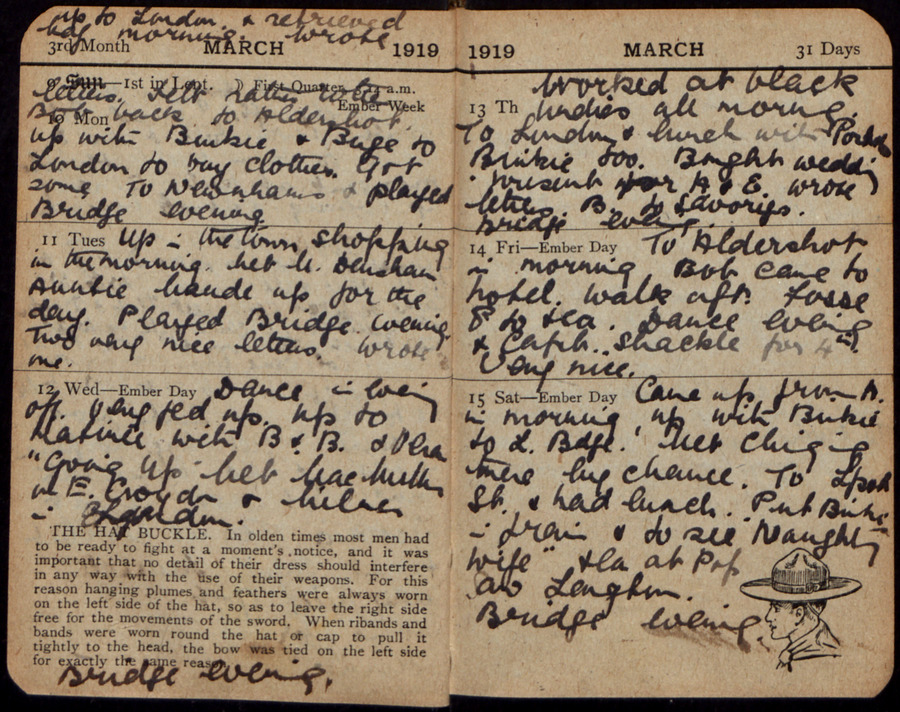 up to London. & retrieved
bag morning. Wrote
3rd Month MARCH 1919
9 Sun—1st in Lent. ☽ First Quarter, a.m.
letters. Felt rather
Ember Week
10 Mon back to Aldershot.
up with Binkie & Buge to
London to buy clothes. Got
some. To Newnhams & played
Bridge evening
11 Tues Up in the town shopping
in the morning. Met
Auntie Maude up for the
day. Played Bridge evening.
Two very nice letters. Wrote
me.
12 Wed—Ember Day Dance in
off. Very fed up. Up to
Matinee with B & B. &
"Going Up" Met
in E. Croydon &
in London.
THE HAT BUCKLE. In olden times most men had
to be ready to fight at a moment's notice, and it was
important that no detail of their dress should interfere
in any way with the use of their weapons. For this
reason hanging plumes and feathers were always worn
on the left side of the hat, so as to leave the right side
free for the movements of the sword. When ribands and
bands were worn round the hat or cap to pull it
tightly to the head, the bow was tied on the left side
for exactly the same reason
Bridge evening.
1919 MARCH 31 Days
Worked at black
13 Th undies all morning.
To London & lunch with
Binkie too. Bought wedding
present for A & E. wrote
letters. B. to Savorys.
Bridge evening
14 Fri—Ember Day To Aldershot
in morning Bob came to
hotel. Walk aft.
to tea. Dance evening
& Capt. Shackle for 4th.
Very nice.
15 Sat—Ember Day Came up from A.
in morning, up with Binkie
to L. Bdge. Met
there by chance. To Lpool
St. & had lunch. Put Binkie
in train & to see "Naughty
Wife" tea at Pop
Langham.
Bridge evening.